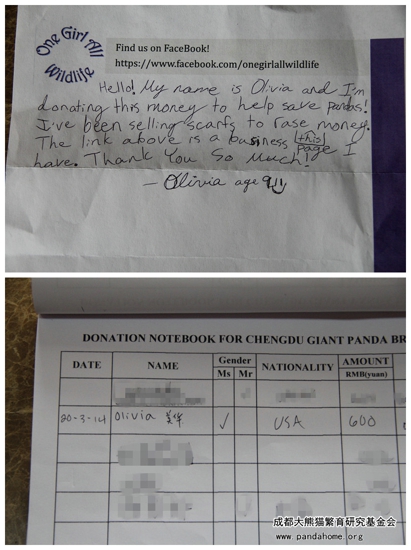 One Girl All
Wildlife
Find us on FaceBook!
https://www.facebook.com/onegirlallwildlife
Hello! My name is Olivia and I'm
donating this money to help save pandas!
I've been selling scarfs to rase money.
The link above is a business [this] page I
have. Thank You So Much!
- Olivia age 9
DONATION NOTEBOOK FOR CHENGDU GIANT PANDA BR
DATE NAME Gender NATIONALITY AMOUNT
Ms Mr RMB(yuan)
20-3-14 Olivia ✓ USA 600
成都大熊猫繁育研究基金会
www.pandahome.org